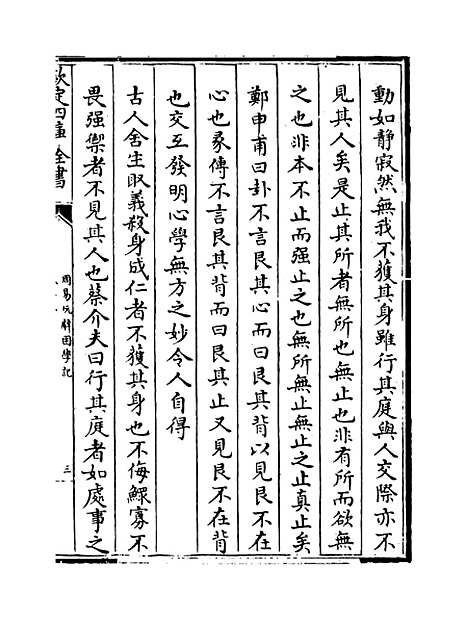 動如靜寂然無我不獲其身雖行其庭與人交際亦不
見其人矣是止其所者無所也無止也非有所而欲無
之也非本不止而强止之也無所無止無止之止真止矣
鄭申甫曰卦不言艮其心而言艮其背以見艮不在
心也彖傳不言艮其背而曰艮其止又見艮不在背
也交互發明心學無方之妙令人自得
古人舍生取義殺身成仁者不獲其身也不侮鰥寡不
畏强禦者不見其人也蔡介夫曰行其庭者如處事之
欽定四庫全書
周易玩辭困學記
三